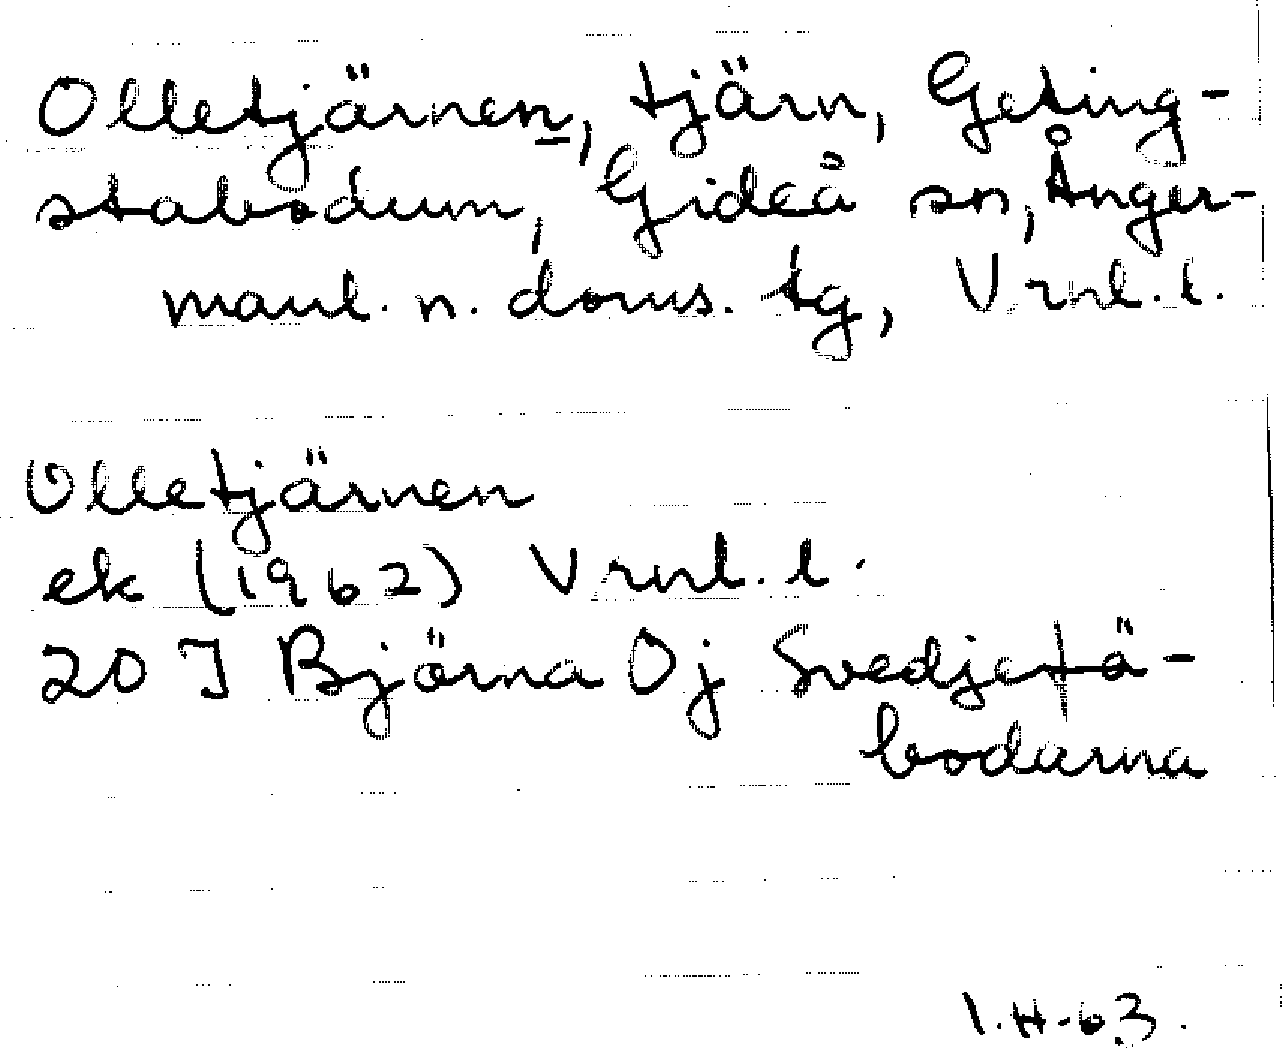 Olletjärnen, tjärn, Geting-
stabodum, Gideå sn, Ånger-
manl. n. doms. tg, Vrnl. l.
Olletjärnen
ek (1962) Vrnl. l.
20 J Björna Oj Svedjetä-
bodarna
I.H-63.